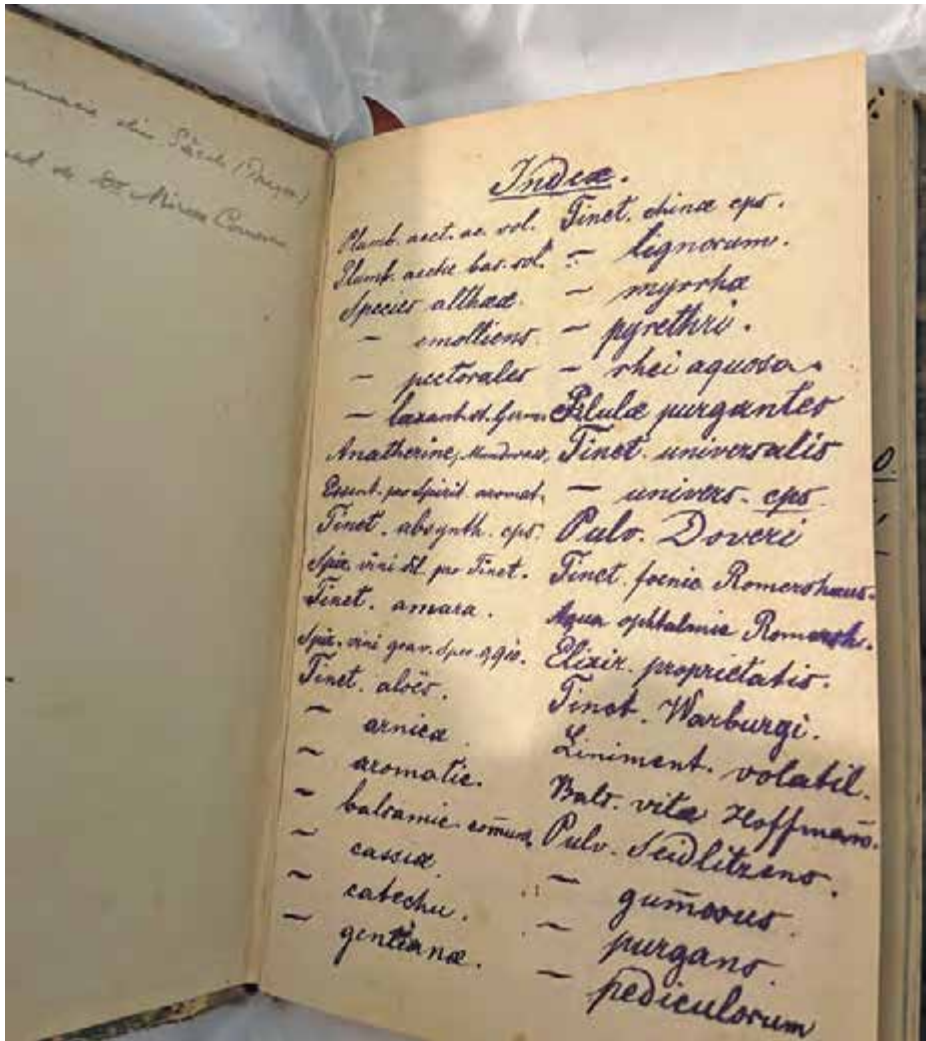 din Săcele (Brașov)
de Dr Mircea
Index.
Plumb. acet. ac. sol.
Plumb. acetic bas. sol.
Species altheæ
– emolliens
– pectorales
– laxant. St. Germ.
Anatherine, Mundwass,
Essent. pro Spirit. aromat.
Tinct. absynth. cps.
Spir. vini dil. pro Tinct.
Tinct. amara.
Spir. vini
Tinct. aloës.
– arnicæ
– aromatic.
– balsamic
– cassiæ
– catechu.
– gentianæ.
Tinct. chinæ cps.
– lignorum.
– myrrhæ
– pyrethri.
– rhei aquosa
Pilulæ purgantes
Tinct. universalis
– univers. cps
Pulv. Doveri
Tinct. foenic Romershaus.
Aqua ophtalmic Romersh.
Elixir. proprietatis.
Tinct. Warburgi.
Liniment. volatil.
Bals. vitæ Hoffmañ.
Pulv. Seidlitzens.
– gum̄osus
– purgans
– pediculorum